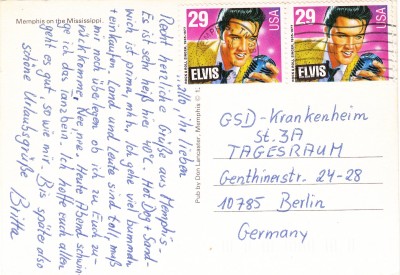 Memphis on the Mississippi.
"Hallo, ihr lieben
Recht herzliche Grüße aus Memphis.
Es ist sehr heiß hier 40°C. Hot Dog + Sand-
wich ist prima, mhh. Ich gehe viel bummeln
+ einkaufen. Land und Leute sind toll, muß
mir noch überlegen ob ich zu Euch zu-
rückkomme. Nee, nee. Heute Abend schwin
ge ich das Tanzbein. Ich hoffe euch allen
geht es gut so wie mir. Bis später also
schöne Urlaubsgrüße
Britta
Pub by Don Lancaster, Memphis © 1.
29
USA
ELVIS
29
USA
ELVIS
GSD-Krankenheim
St. 3A
TAGESRAUM
Genthinerstr. 24-28
10785 Berlin
Germany